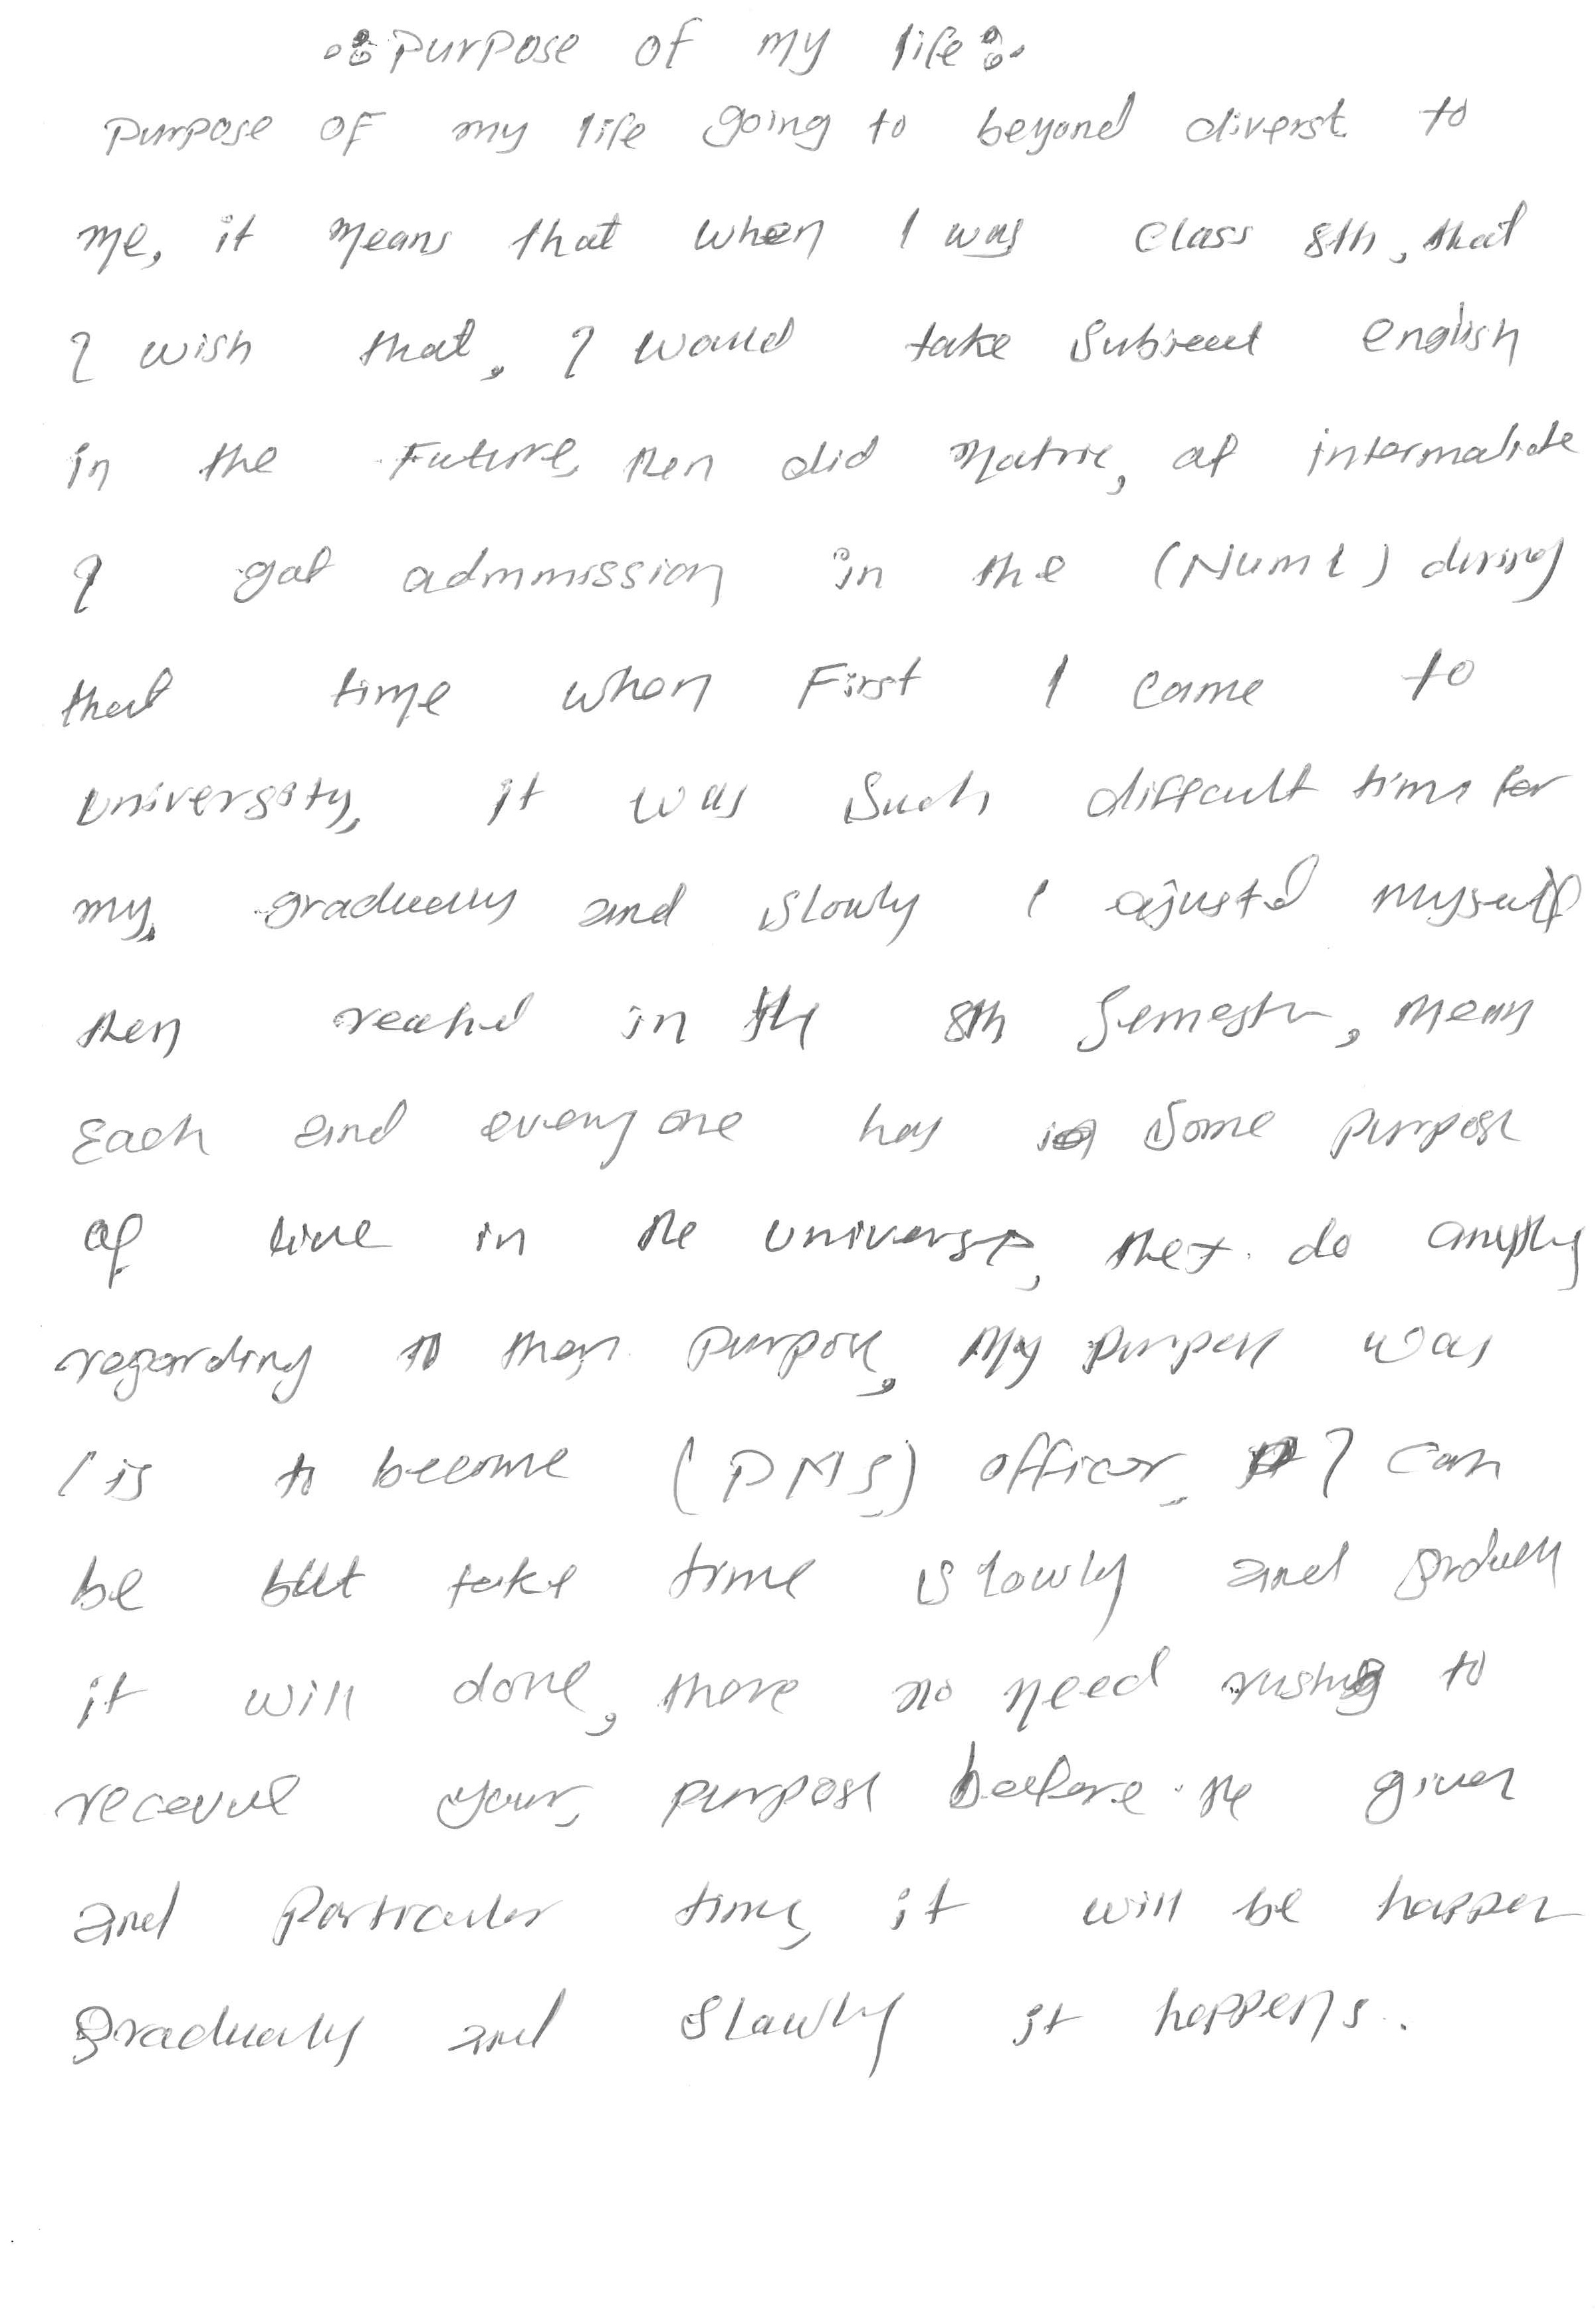 Purpose of my life
Purpose of my life going to beyond diverst to
me, it means that when I was class 8th, that
I wish that, I would take subject english
in the Future, then did matric, at
I gat admmission in the (Numl) during
that time when First I came to
universoty, it was such difficult time for
my, gradually and slowly I ajusted myself
then reached in the 8th Semester, mean
Each and every one has some purpose
of live in the universe, do anything
regarding to purpose, My purpose was
/ is to become (PMS) officer, I can
be but take time slowly and
it will done, there no need rushing to
your purpose beefore the given
and Particular time, it will be happen
gradually and slawly it happens.